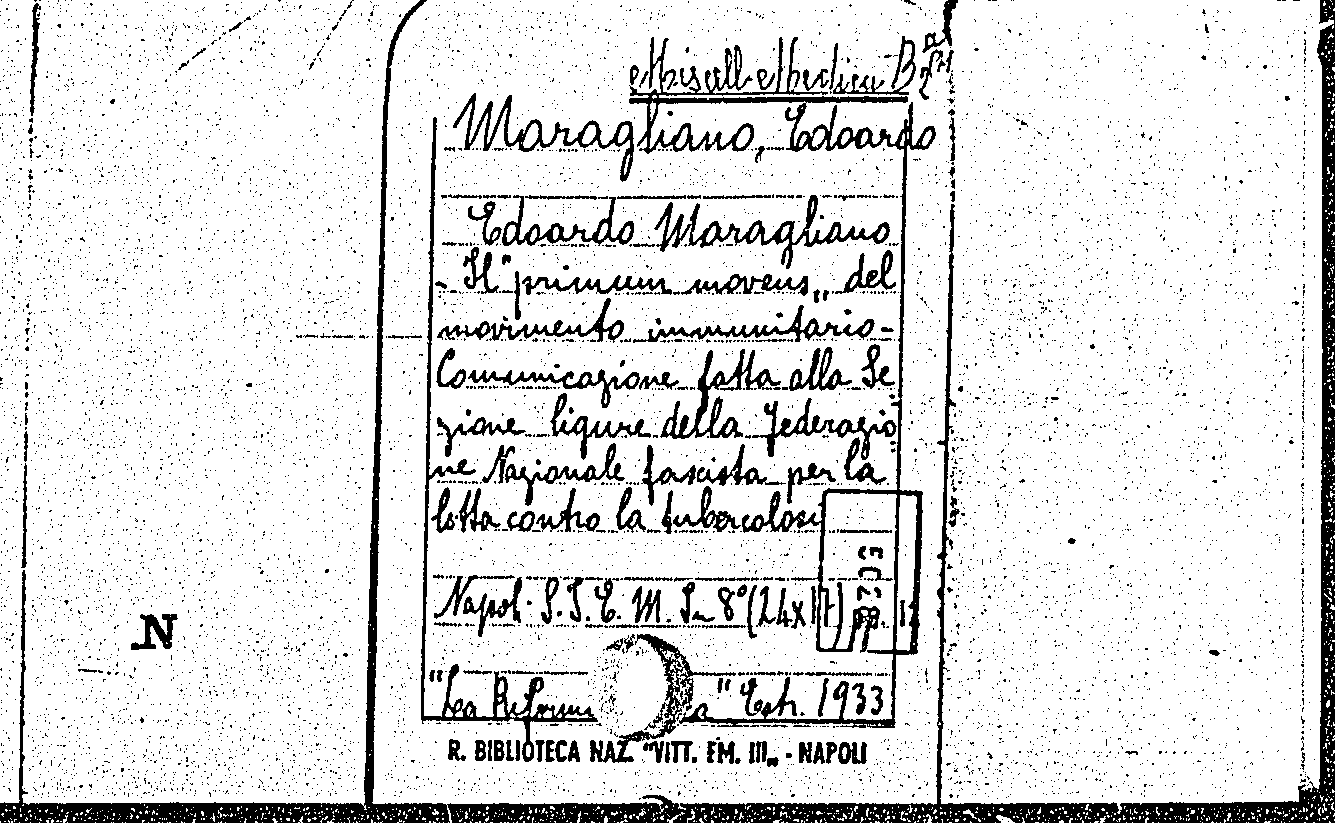 Miscell. Medica B
Maragliano, Edoardo
Edoardo Maragliano
- Il "primum movens„ del
movimento immunitario -
Comunicazione fatta alla Se
zione ligure della Federazio
ne Nazionale fascista per la
lotta contro la tubercolosi
Napoli. S.I.E.M. In 8° (24x17) pp. 12
"La Riforma" Estr. 1933
R. BIBLIOTECA NAZ. "VITT. EM. III„ - NAPOLI
N